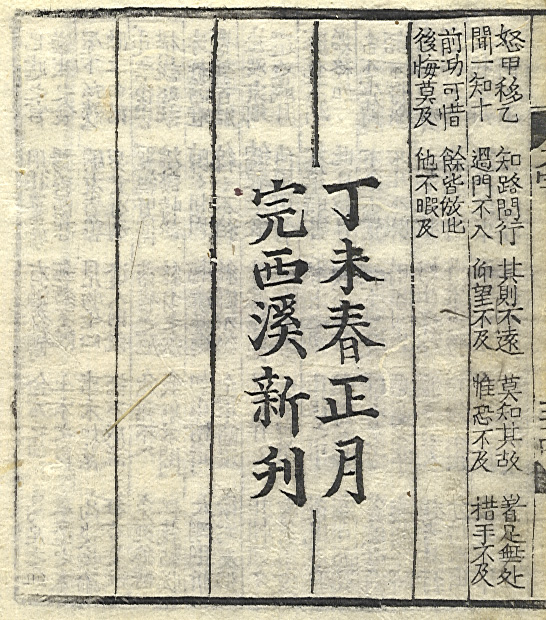 怒甲移乙 知路問行 其則不遠 莫知其故 着足無处
聞一知十 過門不入 仰望不及 惟恐不及 措手不及
前功可惜 餘皆倣此
後悔莫及 他不暇及
丁未春正月
完西溪新刋